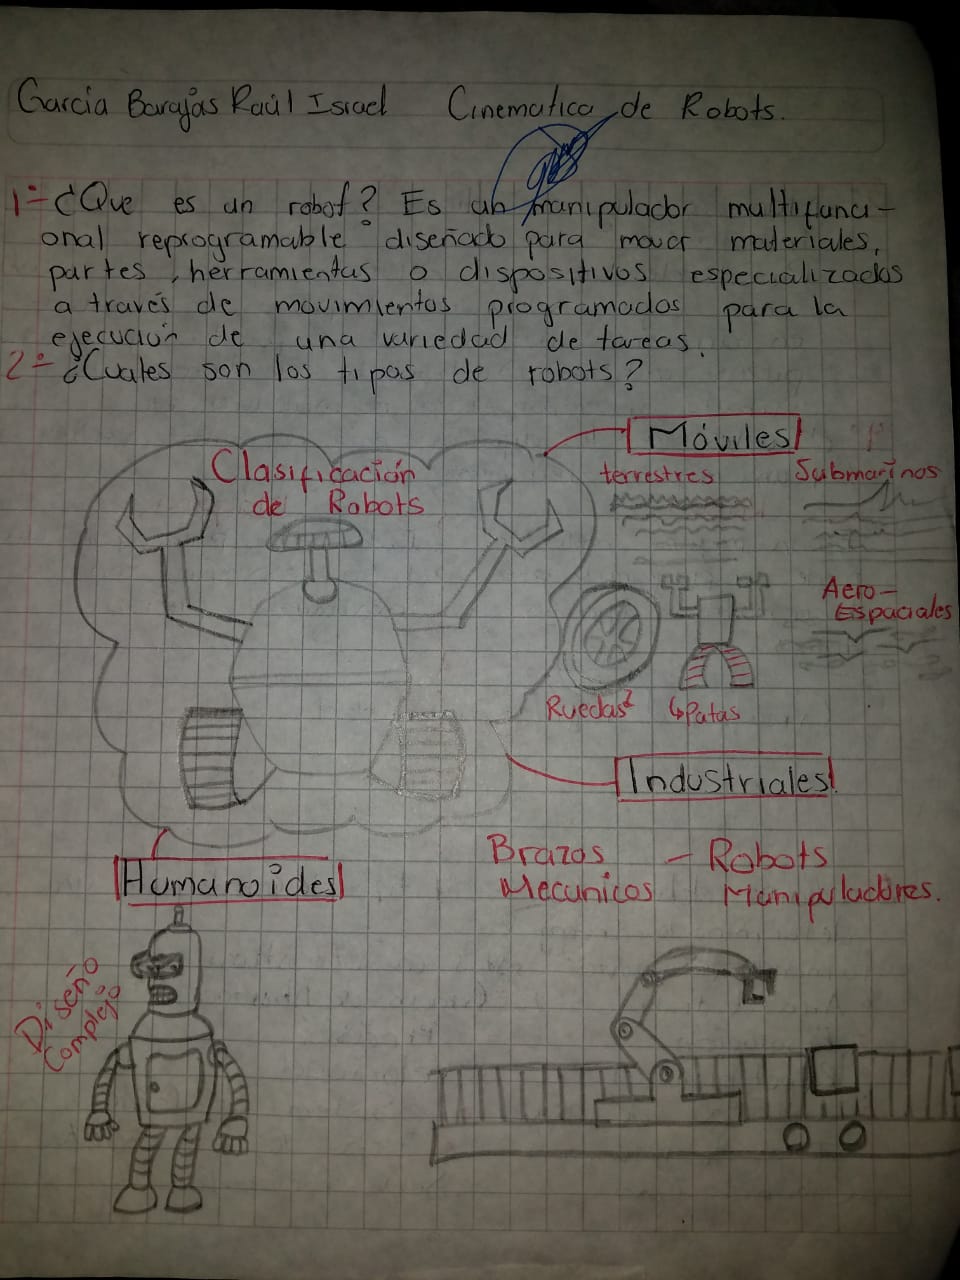 Garcia Barajas Raúl Israel Cinematica de Robots.
1.- ¿Que es un robot? Es un manipulador multifunci-
onal reprogramable diseñado para mover materiales,
partes, herramientas o dispositivos especializados
a través de movimientos programados para la
ejecución de una variedad de tareas.
2.- ¿Cuales son los tipos de robots?
Clasificación
de Robots
Móviles
terrestres
Submarinos
Aero-
Espaciales
Ruedas
↳Patas
Industriales
Brazos
Mecanicos
- Robots
Manipuladores.
Humanoides
Diseño
Complejo